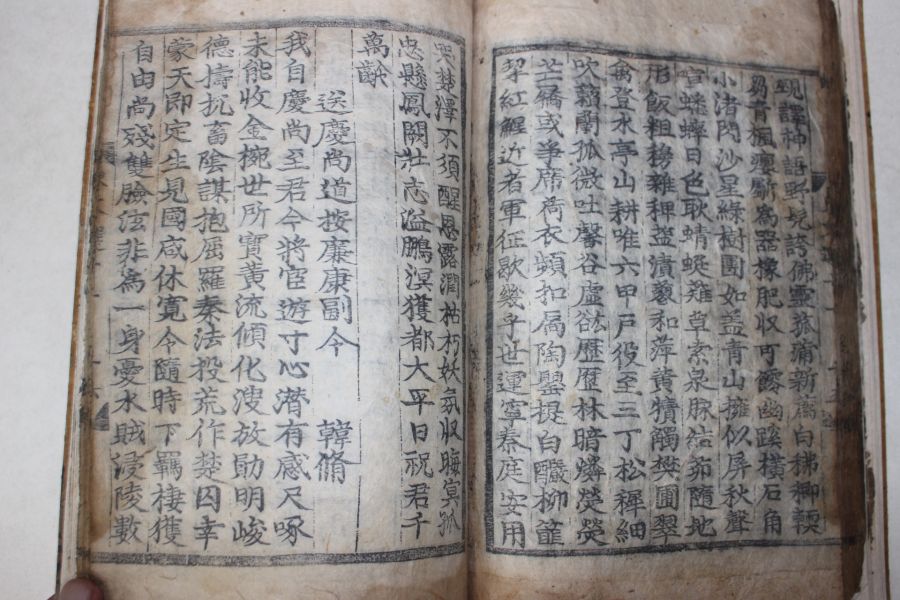 覡譚神語野兒誇佛靈菰蒲新鴈白稊稗輭
蒭青楓癭斸為罌橡肥収可斸幽蹊橫石角
小渚閃沙星綠樹團如盖青山擁似屏秋聲
喧蟋蟀日色耿蜻蜓薙草索泉脉結茆隨地
形飯粗䅟雜稗虀漬蔥和萍黃犢觸樊圃翠
禽登水亭山耕唯六甲戶役至三丁松穉細
吹籟蘭孤微吐馨谷虛欲歷歷林暗燐熒熒
芒屩或爭席荷衣頻扣扃陶甖提白釀柳籠
挈紅鯹近者軍征歇幾乎世運寧秦庭安用
哭楚澤不須醒恩露潤枯朽妖氛収晦冥孤
忠懸鳳闕壯志溢鵬溟獲都大平日祝君千
萬齡
送慶尚道按廉康副令 韓脩
我自慶尚至君今將宦遊寸心潛有感尺啄
未能收金擲世所寶黃流傾化溲放勛明峻
德擣扤畜陰謀抱屈羅秦法投荒作楚囚幸
蒙天即定生見國咸休寬令隨時下羈棲獲
自由尚殘雙臉泫非為一身憂水賊浸陵數